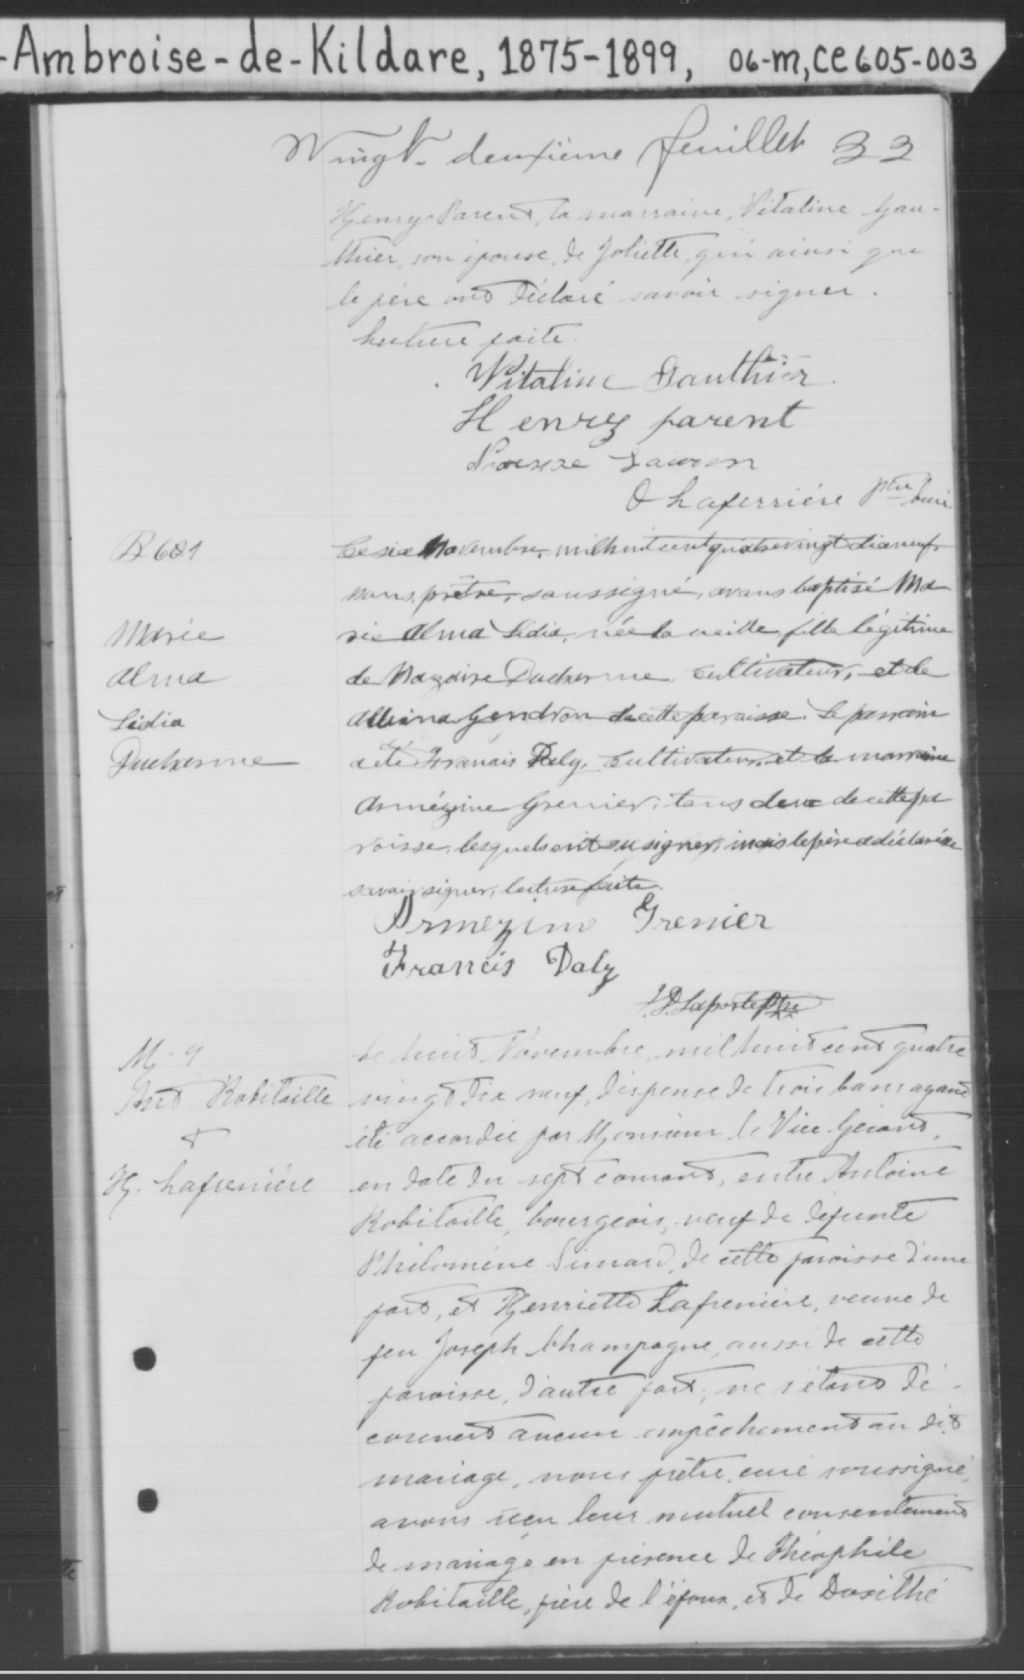 -Ambroise-de-Kildare, 1875-1899, 06-M, CE605-003
Vingt deuxième feuillet 22
Henry Parent, la marraine, Vitaline Gau-
thier, son épouse, de Joliette, qui ainsi que
le père ont déclaré savoir signer.
Lecture faite.
Vitaline Gauthier
Henry parent
O Laferrière Ptre Curé
B 61
Marie
Alma
Lidia
Ducharme
Le six Novembre, mil huit cent quatre vingt dix neuf,
nous, prêtre, soussigné, avons baptisé Ma
rie Alma Lidia, née la veille, fille légitime
de Nazaire Ducharme, cultivateur, et de
Albina Gendron de cette paroisse. Le parrain
a été Francis Daly, cultivateur, et la marraine
Armézime Grenier, tous deux de cette pa
roisse, lesquels ont su signer, mais le père a déclaré ne
savoir signer, lecture faite.
Armezime Grenier
Francis Daly
J.D. Laporte Ptre
M. 9
Ant Robitaille
&
H. Lafrenière
Le huit Novembre, mil huit cent quatre
vingt dix neuf, dispense de trois bans ayant
été accordée par Monsieur le Vice-Gérant,
en date du sept courant, entre Antoine
Robitaille, bourgeois, veuf de défunte
Philomène Simard, de cette paroisse d'une
part, et Henriette Lafrenière, veuve de
feu Joseph Champagne, aussi de cette
paroisse, d'autre part; ne s'étant dé-
couvert aucun empêchement au dit
mariage, nous prêtre, curé soussigné,
avons reçu leur mutuel consentement
de mariage en présence de Théophile
Robitaille, frère de l'époux, et de Dosithé